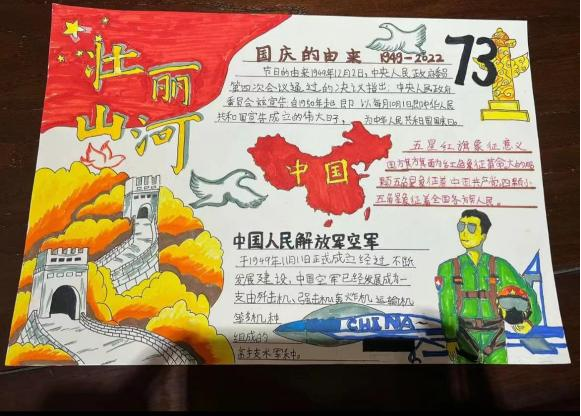 壮丽
山河
国庆的由来 1949-2022
73
节日的由来1949年12月2日,中央人民政府委员
第四次会议通过的《决议》指出:中央人民政府
委员会兹宣告:自1950年起即以每年10月1日,即中华人民
共和国宣告成立的伟大日子,为中华人民共和国国庆日。
五星红旗象征意义
中国
中国人民解放军空军
于1949年11月11日正式成立经过不断
发展建设,中国空军已经发展成为一
支由歼击机、强击机、轰炸机、运输机
等多机种
组成的
高技术军兵种。
CHINA